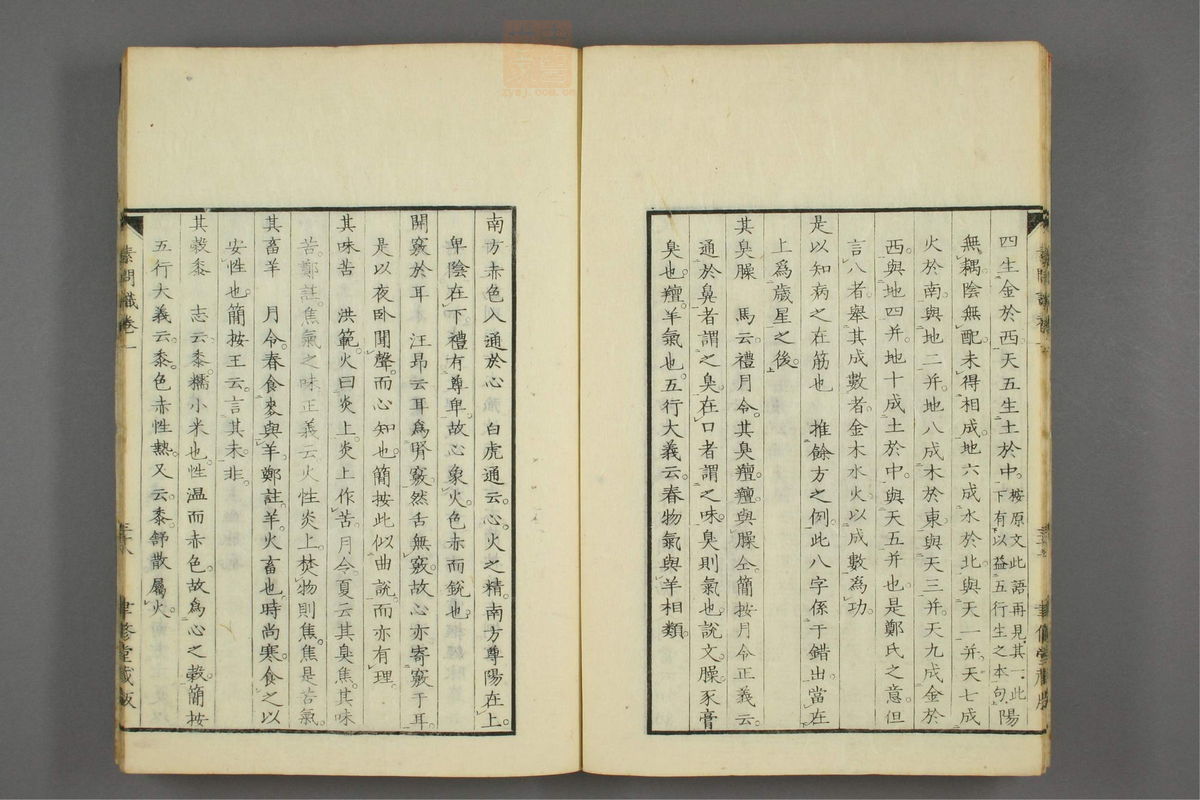 四生金於西天五生土於中按原文此語再見其一此下有以益五行生之本句陽
無耦陰無配未得相成地六成水於北與天一并天七成
火於南與地二并地八成木於東與天三并天九成金於
西與地四并地十成土於中與天五并也是鄭氏之意但
言八者舉其成數者金木水火以成數爲功
是以知病之在筋也　推餘方之例此八字係于錯出當在
上爲歲星之後
其臭臊　馬云禮月令其臭羶羶與臊仝簡按月令正義云
通於鼻者謂之臭在口者謂之味臭則氣也說文臊豕膏
臭也羶羊氣也五行大義云春物氣與羊相類
南方赤色入通於心　白虎通云心火之精南方尊陽在上
卑陰在下禮有尊卑故心象火色赤而銳也
開竅於耳　汪昂云耳爲腎竅然舌無竅故心亦寄竅于耳
是以夜卧聞聲而心知也簡按此似曲說而亦有理
其味苦　洪範火曰炎上炎上作苦月令夏云其臭焦其味
苦鄭註焦氣之味正義云火性炎上焚物則焦焦是苦氣
其畜羊　月令春食麥與羊鄭註羊火畜也時尚寒食之以
安性也簡按王云言其未非
其穀黍　志云黍糯小米也性温而赤色故爲心之穀簡按
五行大義云黍色赤性熱又云黍舒散屬火
素問識卷一
三十八
聿修堂藏版